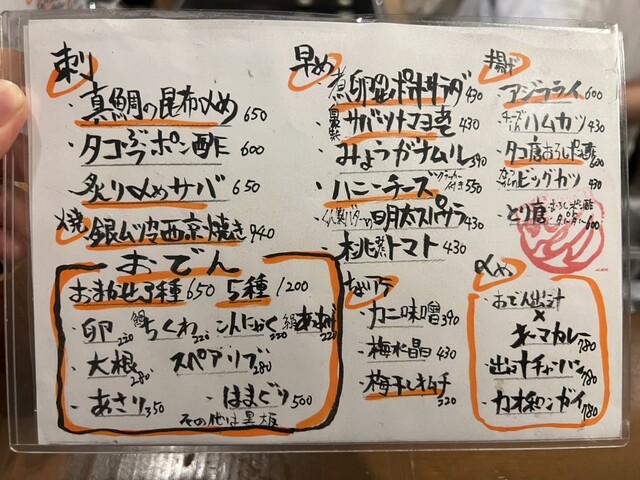 刺
・真鯛の昆布〆め 650
・タコぶつポン酢 600
・炙り〆めサバ 650
焼
・銀ムツ西京焼き 940
おでん
おまかせ3種 650 5種 1200
・卵 220 ・ちくわ 220 ・こんにゃく 220
・大根 280 ・スペアリブ 280
・あさり 350 ・はまぐり 500
その他は黒板
早め
・煮卵のポテトサラダ 430
・サバツナマヨ 430
・みょうがナムル 390
・ハニーチーズ クラッカー付き 550
・明太スパサラ 430
・トマト 430
ないろ
・カニ味噌 390
・梅水晶 430
・梅干しキムチ 320
揚げ
・アジフライ 600
・チーズinハムカツ 430
・タコ唐おろしポン酢 600
・ビッグカツ 430
・とり唐 600
〆め
・おでん出汁
×
キーマカレー 780
・出汁チャーハン 780
・カオマンガイ 780